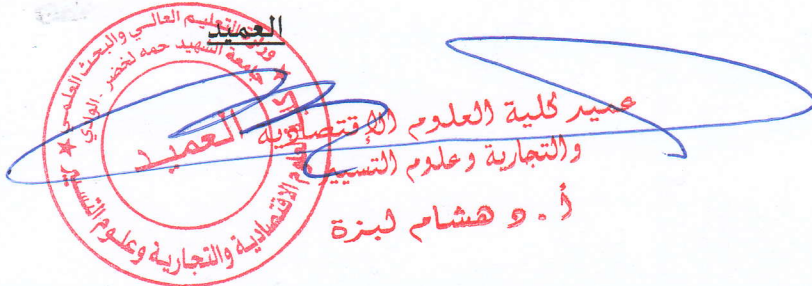 العميد
وزارة التعليم العالي والبحث العلمي
جامعة الشهيد حمه لخضر - الوادي
العميد
كلية العلوم الاقتصادية والتجارية وعلوم التسيير
عميد كلية العلوم الاقتصادية
والتجارية وعلوم التسيير
أ. د هشام لبزة